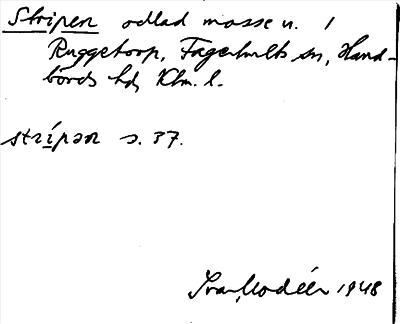 Stripen odlad mosse n. /
Ruggetorp, Fagerhults sn, Hand-
börds hd, Klm. l.
strípən s. 37.
Ivar Modéer 1948